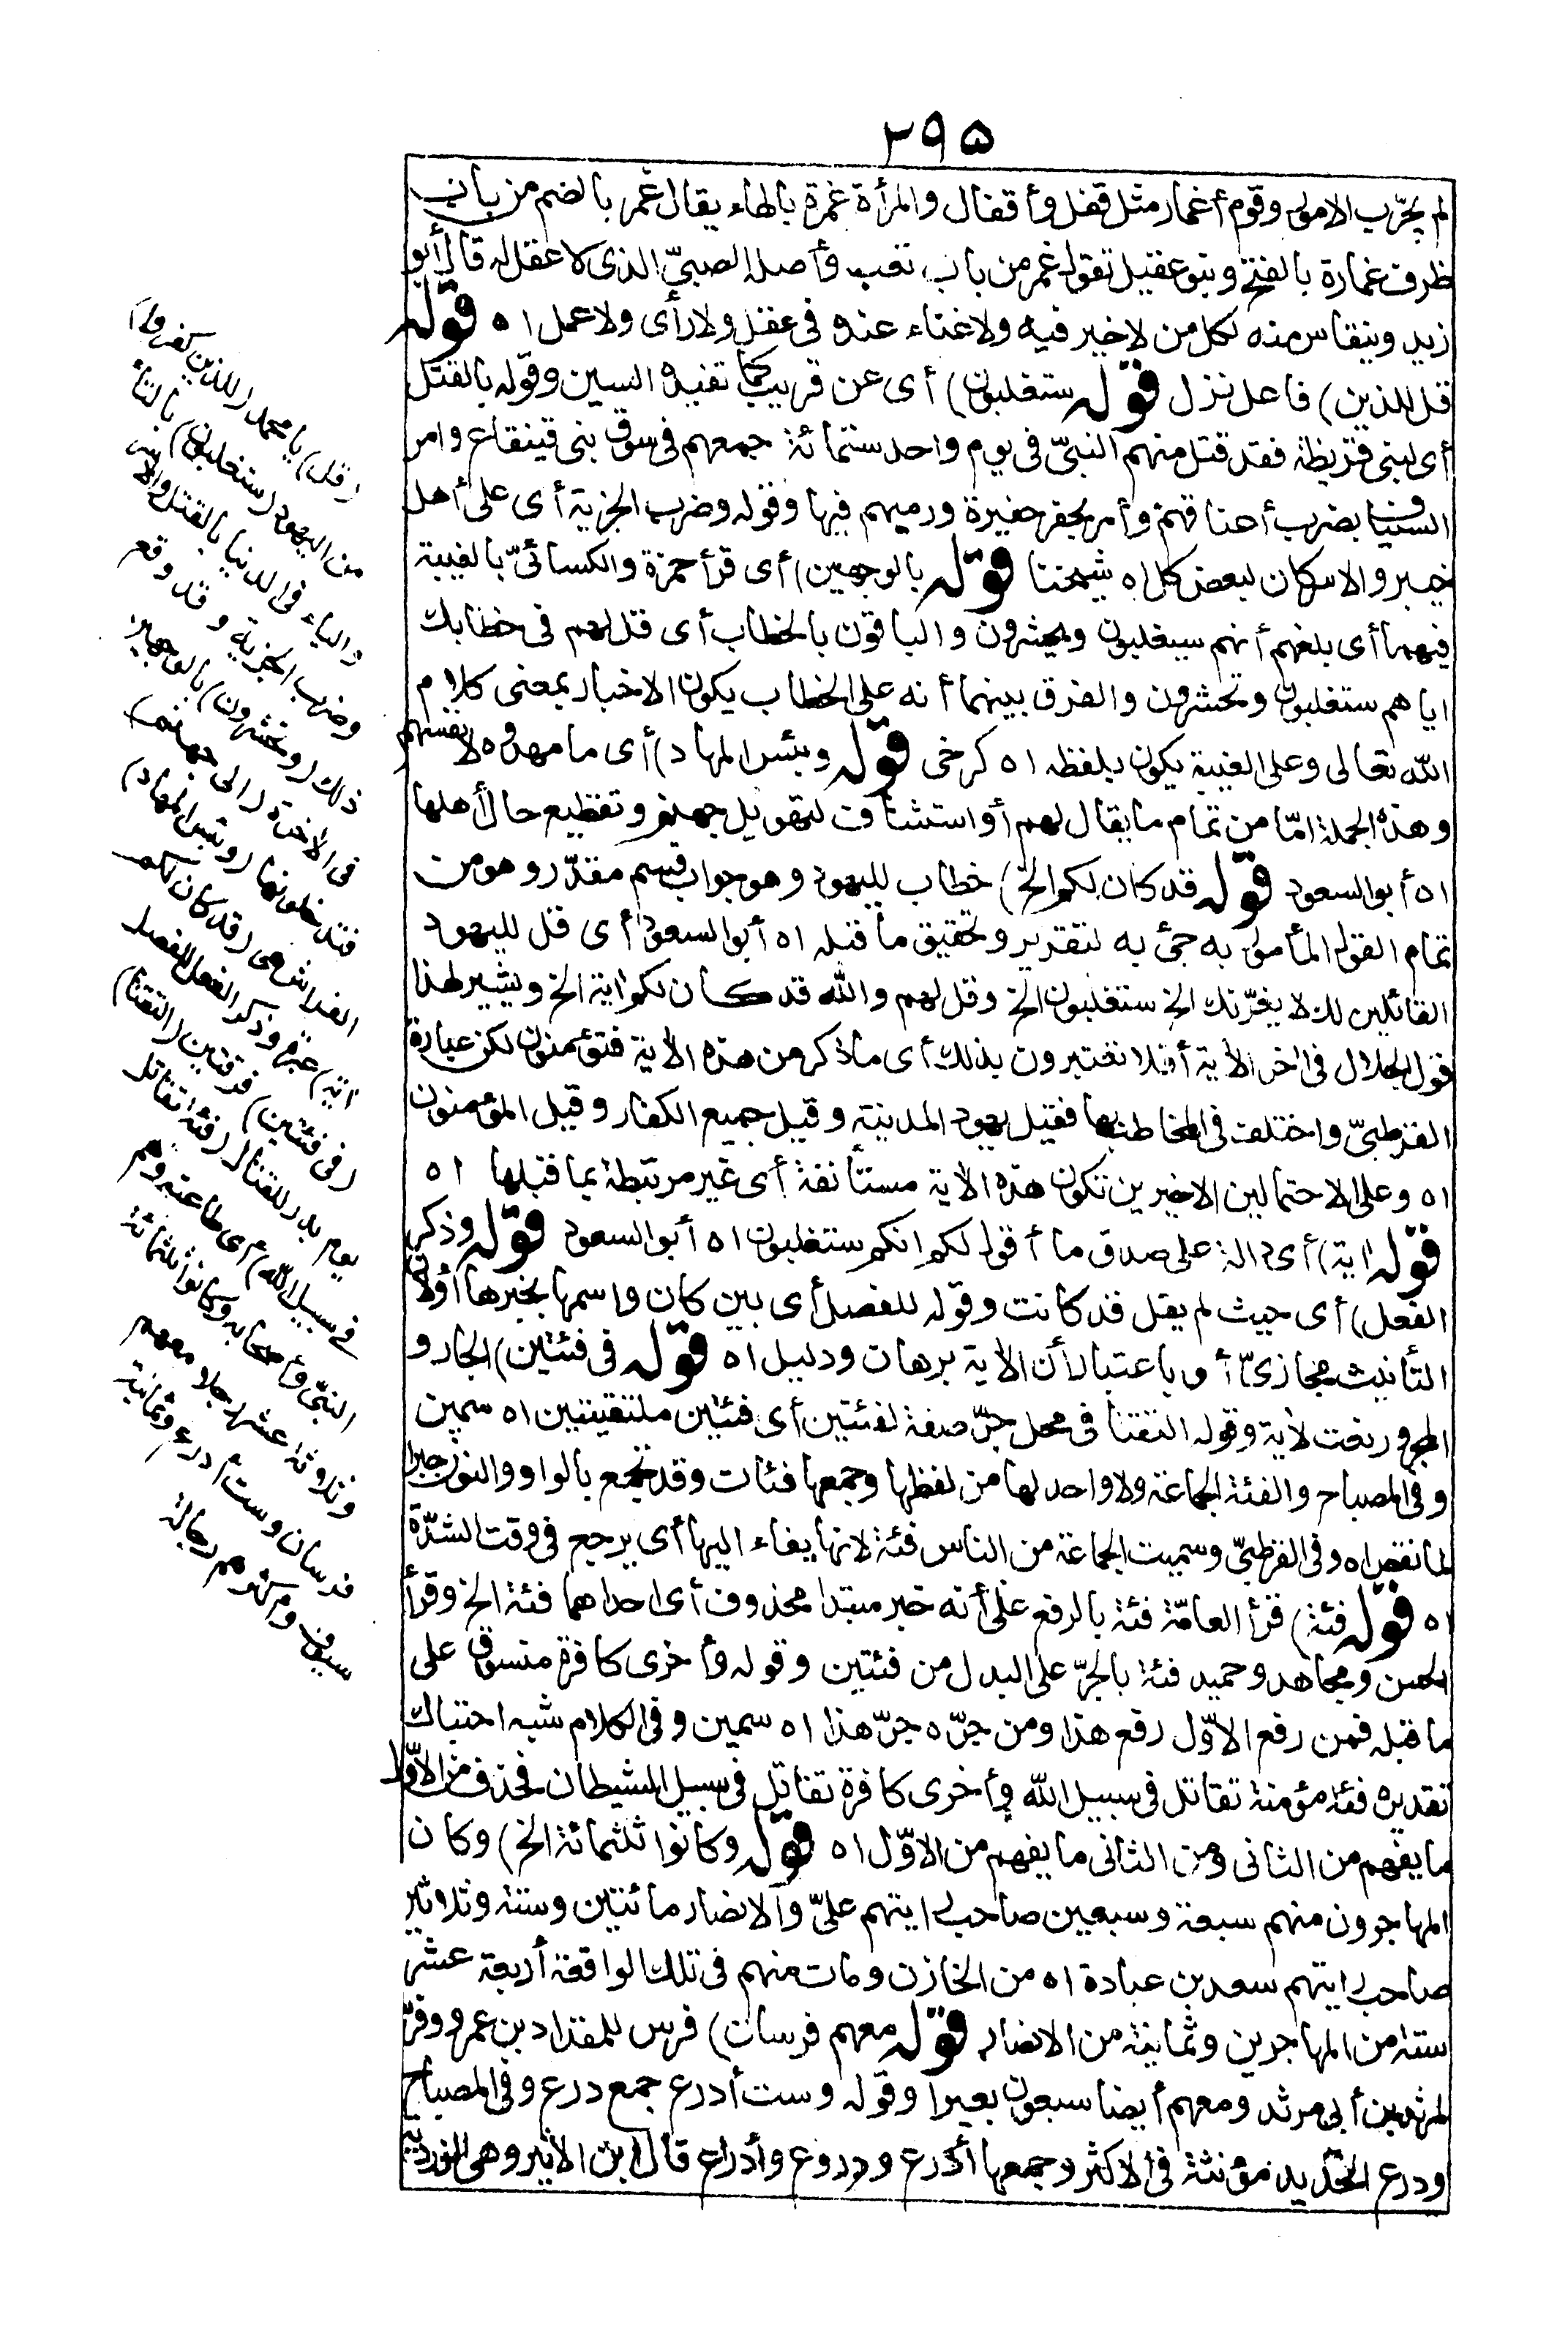 ٢٩٥
لم يجرّب الامور وقوم أغمار مثل قفل وأقفال والمرأة غمرة بالهاء يقال غمر بالضم من باب
ظرف غمارة بالفتح وبنو عقيل تقول غمر من باب تعب وأصله الصبىّ الذى لا عقل له قال أبو
زيد وينقاس منه لكل من لا خير فيه ولا غناء عنده فى عقل ولا رأى ولا عمل اه قوله
قل للذين) فاعل نزل قوله ستغلبون) أى عن قريب كما تفيده السين وقوله بالقتل
أى لبنى قريظة فقد قتل منهم النبىّ فى يوم واحد ستمائة جمعهم فى سوق بنى قينقاع وامر
السياف بضرب أعناقهم وأمر بحفر حفيرة ورميهم فيها وقوله وضرب الجزية أى على أهل
خيبر والاسكان لبعض كل اه شيخنا قوله بالوجهين) أى قرأ حمزة والكسائىّ بالغيبة
فيهما أى بلغهم أنهم سيغلبون ويحشرون والباقون بالخطاب أى قل لهم فى خطابك
اياهم ستغلبون وتحشرون والفرق بينهما أنه على الخطاب يكون الاخبار بمعنى كلام
الله تعالى وعلى الغيبة يكون بلفظه اه كرخى قوله وبئس المهاد) أى ما مهدوه لانفسهم
وهذه الجملة امّا من تمام ما يقال لهم أو استئناف لتهويل جهنم وتفظيع حال أهلها
اه أبو السعود قوله قد كان لكم الخ) خطاب لليهود وهو جواب قسم مقدّر وهو من
تمام القول المأمور به جئ به لتقرير وتحقيق ما قبله اه أبو السعود أى قل لليهود
القائلين لك لا يغرّنك الخ ستغلبون الخ وقل لهم والله قد كان لكم اية الخ ويشير لهذا
قول الجلال فى اخر الأية أفلا تعتبرون بذلك أى ما ذكر من هذه الأية فتؤمنون لكن عبارة
القرطبىّ واختلف فى المخاطب بها فقيل يهود المدينة وقيل جميع الكفار وقيل المؤمنون
اه وعلى الاحتمالين الاخيرين تكون هذه الأية مستأنفة أى غير مرتبطة بما قبلها اه
قوله اية) أى دالة على صدق ما أقول لكم انكم ستغلبون اه أبو السعود قوله وذكر
الفعل) أى حيث لم يقل قد كانت وقوله للفصل أى بين كان واسمها بخبرها أو لأن
التأنيث مجازىّ أو باعتبار أن الأية برهان ودليل اه قوله فى فئتين) الجار و
المجرور نعت لأية وقوله التقتا فى محل جرّ صفة لفئتين أى فئتين ملتقيتين اه سمين
وفى المصباح والفئة الجماعة ولا واحد لها من لفظها وجمعها فئات وقد تجمع بالواو والنون جبرا
لما نقص اه وفى القرطبىّ وسميت الجماعة من الناس فئة لانها يفاء اليها أى يرجع فى وقت الشدّة
اه قوله فئة) قرأ العامّة فئة بالرفع على أنه خبر مبتدا محذوف أى احداهما فئة الخ وقرأ
الحسن ومجاهد وحميد فئة بالجرّ على البدل من فئتين وقوله وأخرى كافرة منسوق على
ما قبله فمن رفع الاوّل رفع هذا ومن جرّه جرّ هذا اه سمين وفى الكلام شبه احتباك
تقديره فئة مؤمنة تقاتل فى سبيل الله وأخرى كافرة تقاتل فى سبيل الشيطان فحذف من الاوّل
ما يفهم من الثانى ومن الثانى ما يفهم من الاوّل اه قوله وكانوا ثلثمائة الخ) وكان
المهاجرون منهم سبعة وسبعين صاحب رايتهم علىّ والانصار مائتين وستة وثلاثين
صاحب رايتهم سعد بن عبادة اه من الخازن ومات منهم فى تلك الواقعة أربعة عشر
ستة من المهاجرين وثمانية من الانصار قوله معهم فرسان) فرس للمقداد بن عمرو وفرس
لمرثد بن أبى مرثد ومعهم أيضا سبعون بعيرا وقوله وست أدرع جمع درع وفى المصباح
ودرع الحديد مؤنثة فى الاكثر وجمعها أدرع ودروع وأدراع قال ابن الأثير وهى الزردية
(قل) يا محمد (للذين كفروا)
من اليهود (ستغلبون) بالتاء
والياء فى الدنيا بالقتل والاسر
وضرب الجزية وقد وقع
ذلك (وتحشرون) بالوجهين
فى الاخرة (الى جهنم)
فتدخلونها (وبئس المهاد)
الفراش هى (قد كان لكم
اية) عبرة وذكر الفعل للفصل
(فى فئتين) فرقتين (التقتا)
يوم بدر للقتال (فئة تقاتل
فى سبيل الله) أى طاعته وهم
النبىّ وأصحابه وكانوا ثلثمائة
وثلاثة عشر رجلا معهم
فرسان وست أدرع وثمانية
سيوف وأكثرهم رجالة